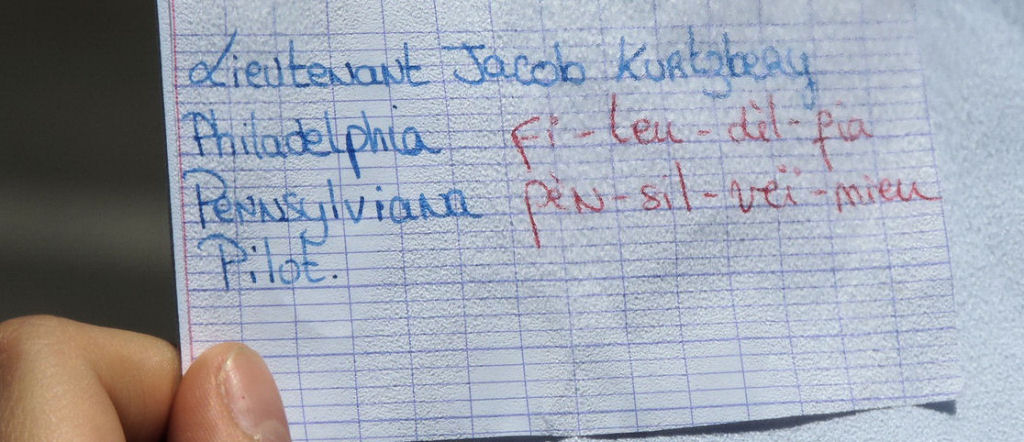 Lieutenant Jacob Kurtzberg
Philadelphia fi-leu-dèl-fia
Pennsylviana pèn-sil-veï-nieu
Pilot.